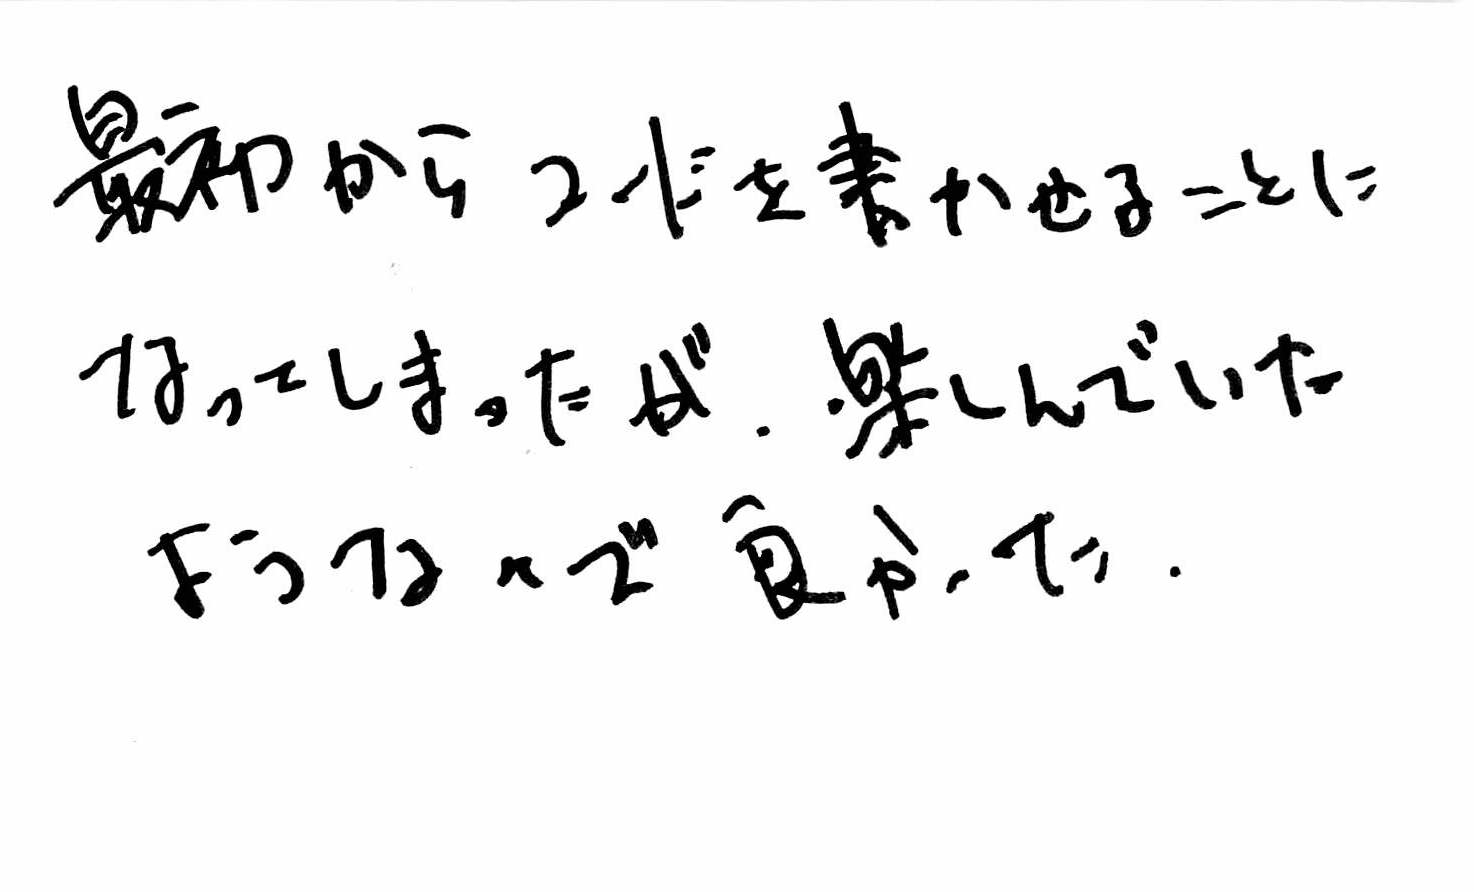 最初からコードを書かせることに
なってしまったが、楽しんでいた
ようなので良かった.